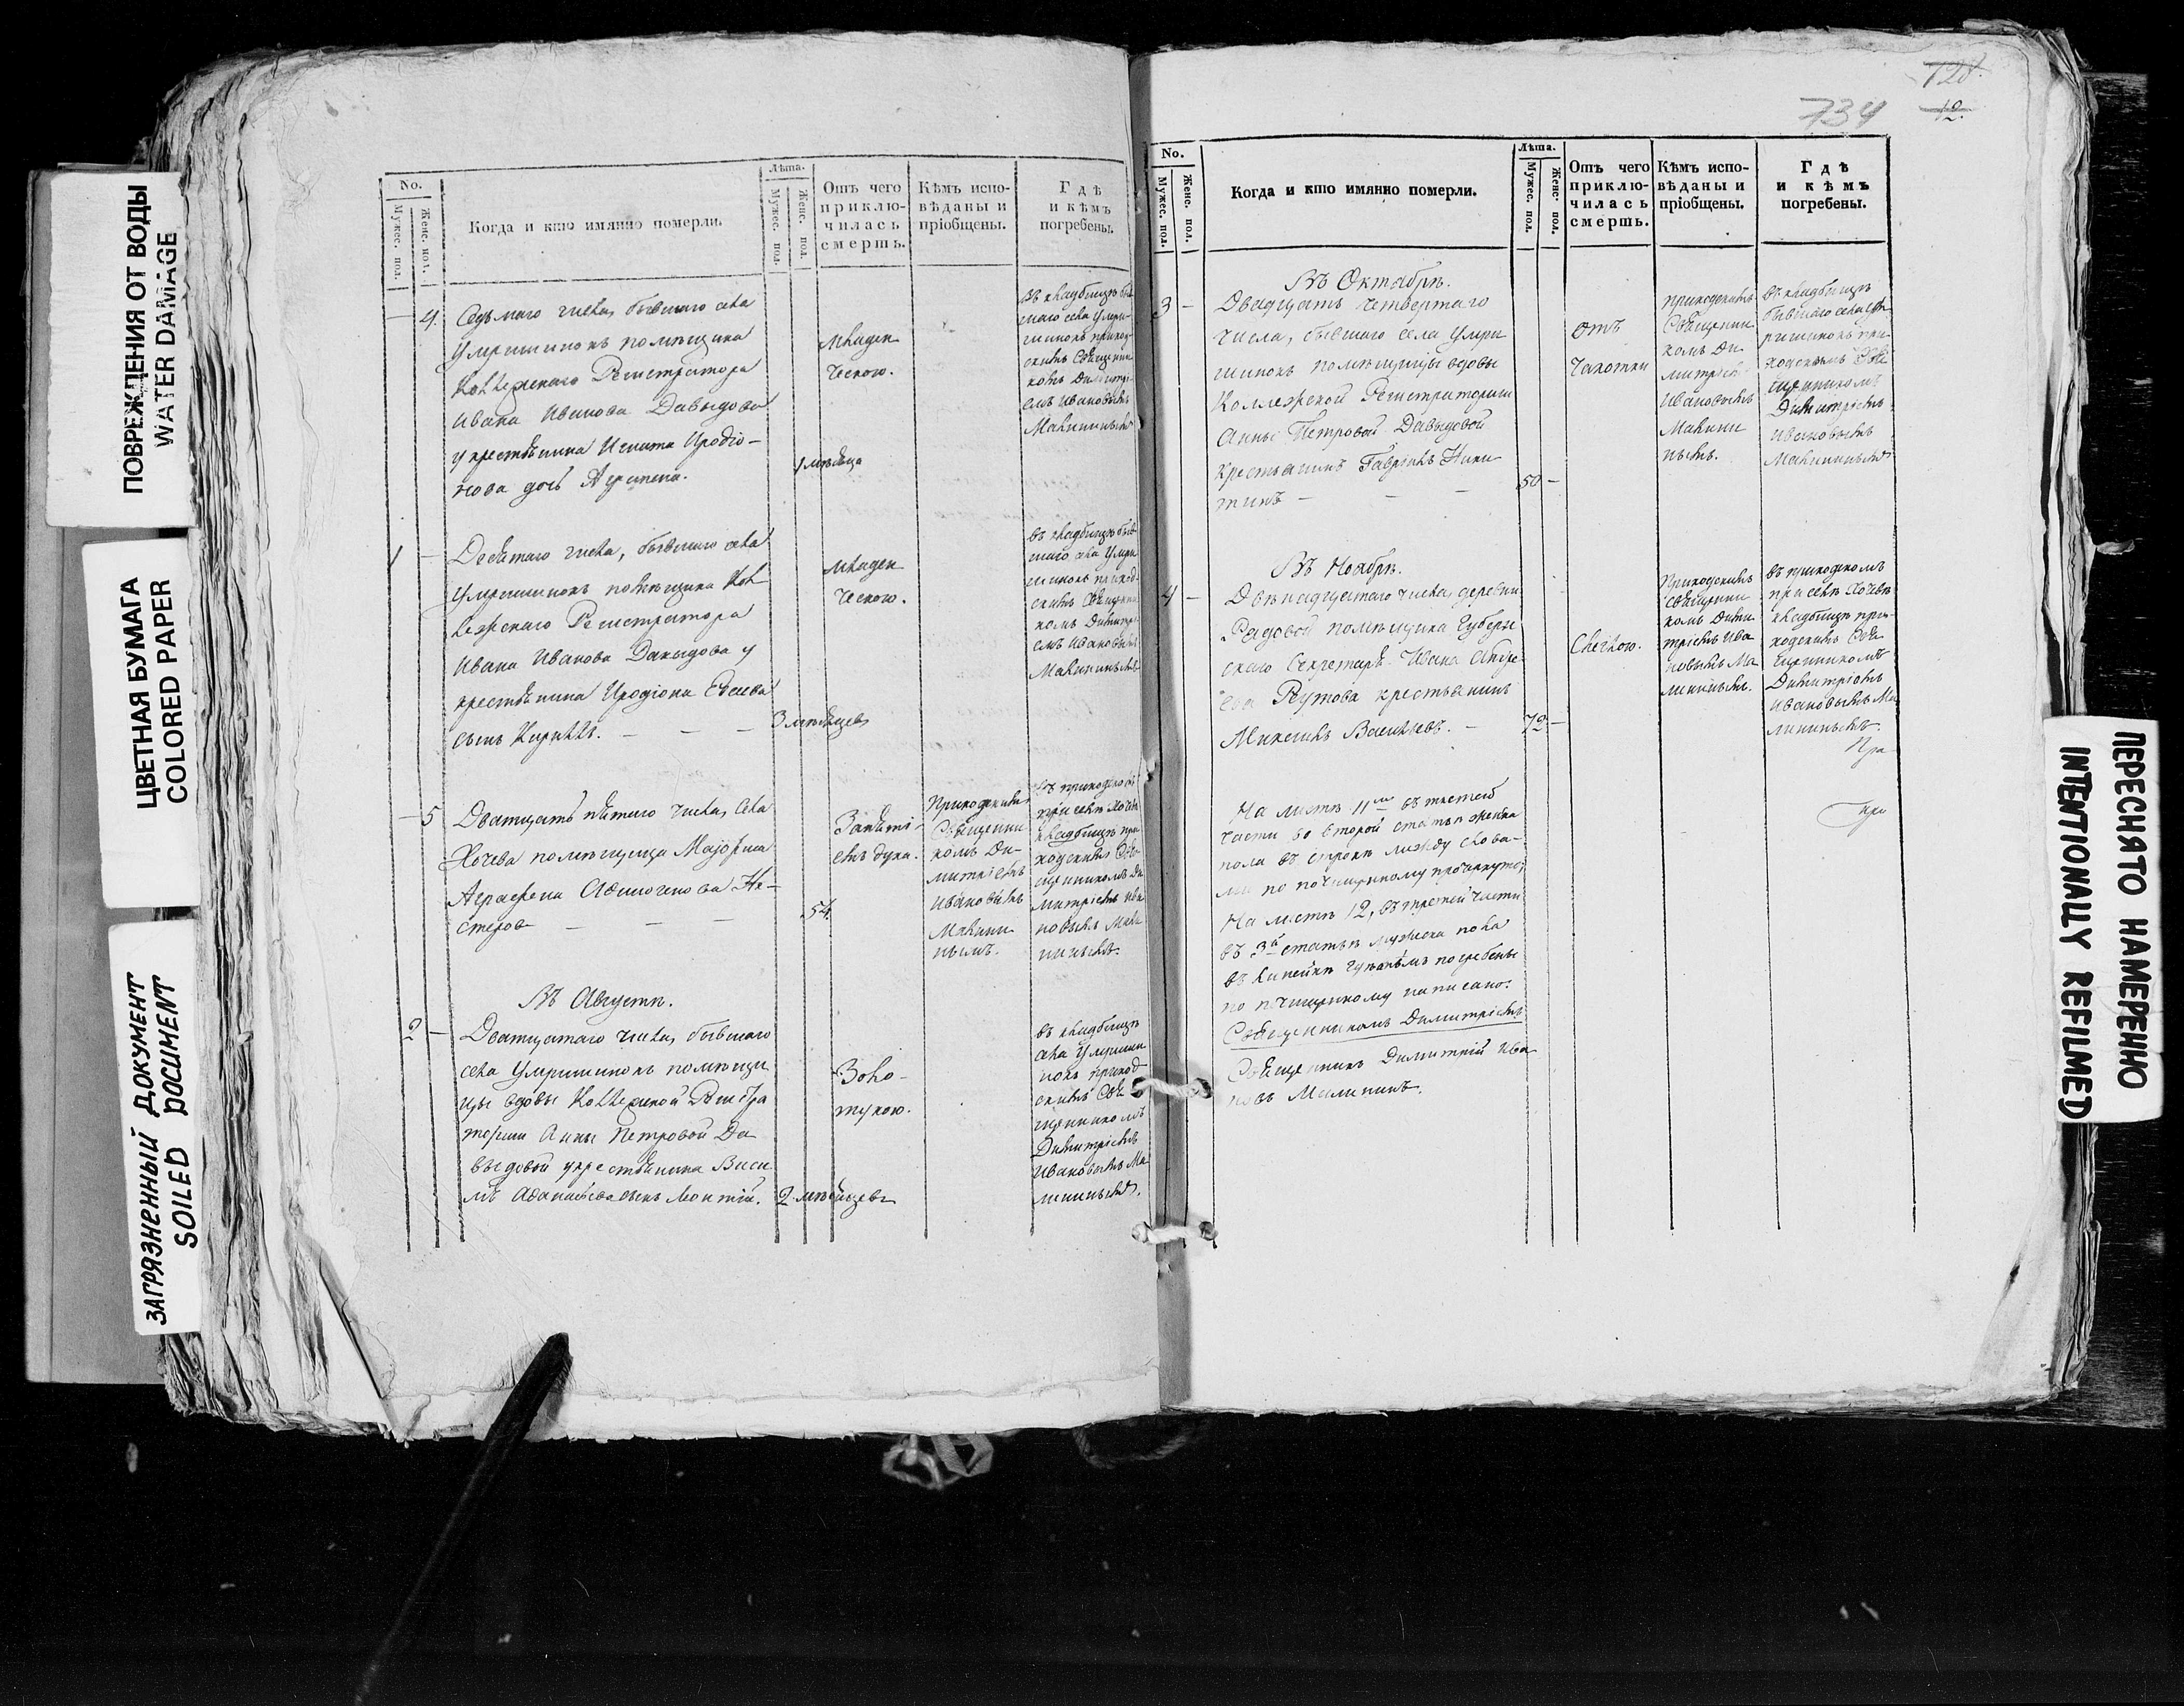 ПОВРЕЖДЕНИЯ ОТ ВОДЫ
WATER DAMAGE
ЦВЕТНАЯ БУМАГА
COLORED PAPER
ЗАГРЯЗНЕННЫЙ ДОКУМЕНТ
SOILED DOCUMENT
No.
Мужес. пол.
Женс. пол.
Когда и кто имянно померли.
Лѣта.
Мужес. пол.
Женс. пол.
Отъ чего
приклю-
чилась
смерть.
Кѣмъ испо-
вѣданы и
пріобщены.
Гдѣ
и кѣмъ
погребены.
— 4. Седьмаго числа, бывшаго села
помѣщика
Коллежскаго Регистратора
Ивана Иванова Давыдова
у крестьянина Игната Иродіо-
нова дочь
1 мѣсяца
младен
ческою.
въ кладбищѣ быв
шаго села Умри
шинокъ приход
скимъ Священни
комъ Димитрі
емъ Ивановымъ
Малининымъ
1 — Девятаго числа, бывшаго села
помѣщика Кол
лежскаго Регистратора
Ивана Иванова Давыдова у
крестьянина Иродіона
сынъ Кириллъ. — — —
3 мѣсяцевъ
младен
ческою.
въ кладбищѣ быв
шаго села Умри
шинокъ приход
скимъ Священни
комъ Димитрі
емъ Ивановымъ
Малининымъ
— 5 Дватцать пятаго числа, села
Хочева помѣщица Маіорша
Аграфена
— — —
54.
Приходскимъ
Священни
комъ Ди-
митріемъ
Ивановымъ
Малини
нымъ.
въ приходскомъ
при селѣ Хочевѣ
кладбищѣ при
ходскимъ Свя
щенникомъ Ди
митріемъ Ива
новымъ Мали
нинымъ.
Въ Августѣ.
2 — Дватцатаго числа, бывшаго
села помѣщи
цы вдовы Коллежской Регистра
торши Анны Петровой Да
выдовой у крестьянина
сынъ
2 мѣсяцевъ
Золо-
тухою.
въ кладбищѣ
села Умриши
нокъ приход
скимъ Свя
щенникомъ
Димитріемъ
Ивановымъ Ма
лининымъ.
128.
734
12.
No.
Мужес. пол.
Женс. пол.
Когда и кто имянно померли.
Лѣта.
Мужес. пол.
Женс. пол.
Отъ чего
приклю-
чилась
смерть.
Кѣмъ испо-
вѣданы и
пріобщены.
Гдѣ
и кѣмъ
погребены.
Въ Октябрѣ.
3 — Двадцать четвертаго
числа, бывшаго села Умри
шинокъ помѣщицы вдовы
Коллежской Регистраторши
Анны Петровой Давыдовой
крестьянинъ Гавріилъ Ники
тинъ — — —
50 —
отъ
чахотки
приходскимъ
Священни
комъ Ди
митріемъ
Ивановымъ
Малини
нымъ.
въ кладбищѣ
бывшаго села Ум
ришинокъ при
ходскимъ Свя
щенникомъ
Димитріемъ
Ивановымъ
Малининымъ
Въ Ноябрѣ.
4 — Двѣнадцатаго числа, деревни
помѣщика Губерн
скаго Секретаря Ивана
Реутова крестьянинъ
Максимъ Васильевъ. —
72 —
приходскимъ
священни
комъ Дими
тріемъ Ива
новымъ Ма
лининымъ.
въ приходскомъ
при селѣ Хочевѣ
кладбищѣ при-
ходскимъ Свя
щенникомъ
Димитріемъ
Ивановымъ Ма
лининымъ.
На листѣ 11мъ въ третьей
части во второй статьѣ женска
пола въ строкѣ между слова-
ми по почищенному
На листѣ 12, въ третей части
въ 3й статьѣ мужеска пола
въ линейкѣ гдѣ и кѣмъ погребены
по почищенному написано:
Священникомъ Димитріемъ
Священникъ Димитрій Ива
новъ Малининъ.
ПЕРЕСНЯТО НАМЕРЕННО
INTENTIONALLY REFILMED